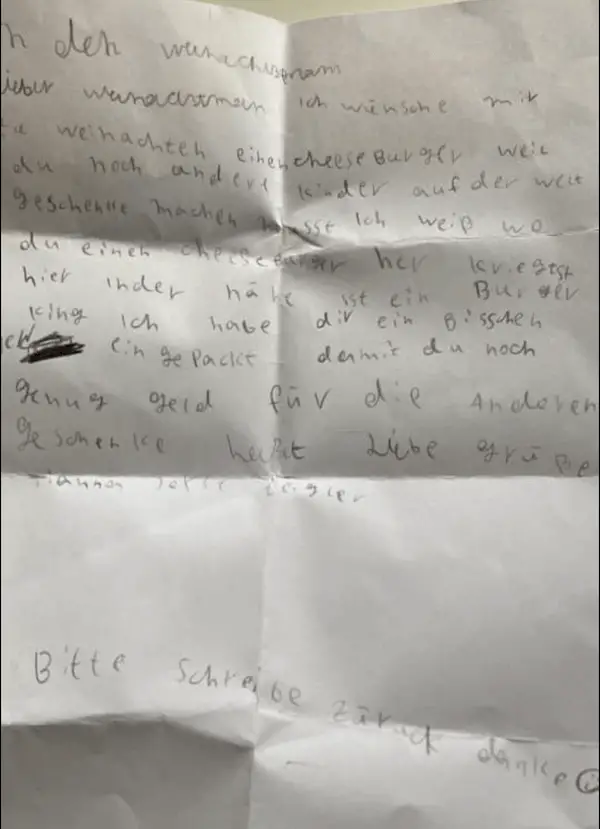 n den wunachsmam
lieber wunachsman ich wünsche mir
zu weinachten einen cheese Burger weil
du noch andere kinder auf der welt
geschenke machen musst Ich weiß wo
du einen cheeseburger her kriegst
hier in der nähe ist ein Burger
King Ich habe dir ein Bisschen
eingepackt damit du noch
genug geld für die Anderen
Geschenke heßt Liebe grüße
Bitte schreibe zurück danke